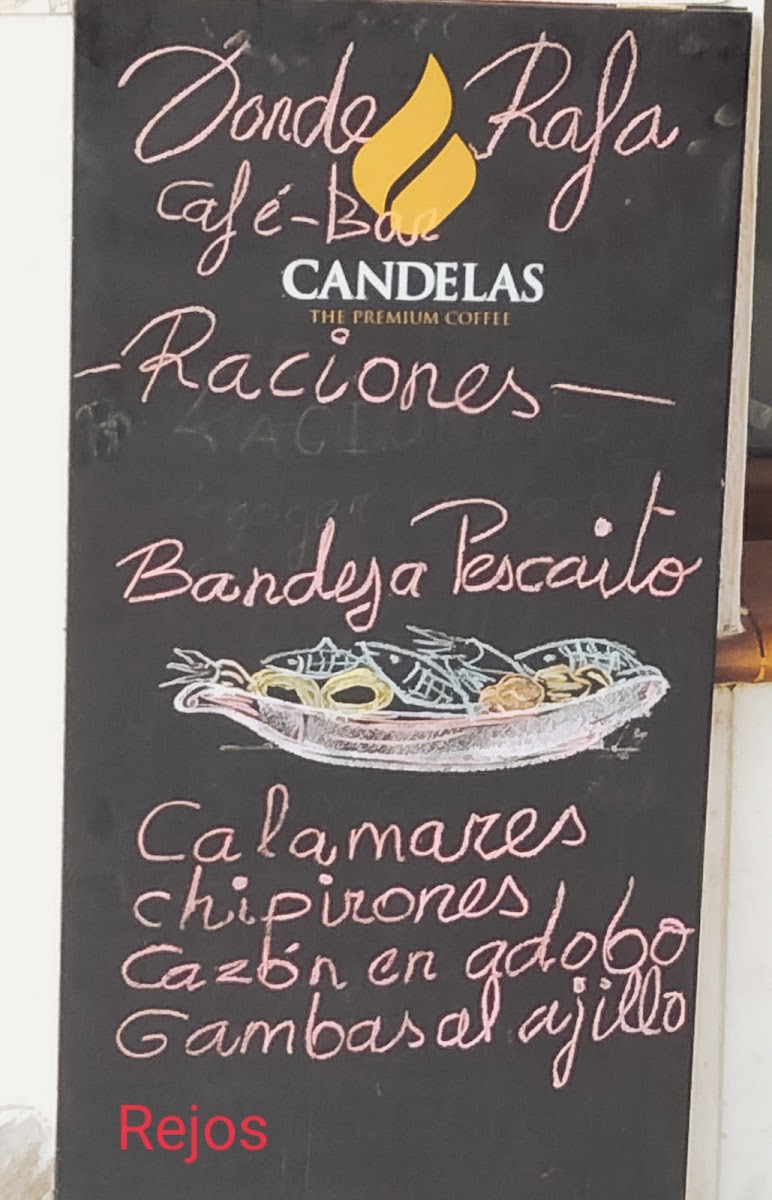 Donde Rafa
Café-Bar
CANDELAS
THE PREMIUM COFFEE
-Raciones-
Bandeja Pescaito
Calamares
chipirones
Cazón en adobo
Gambas al ajillo
Rejos